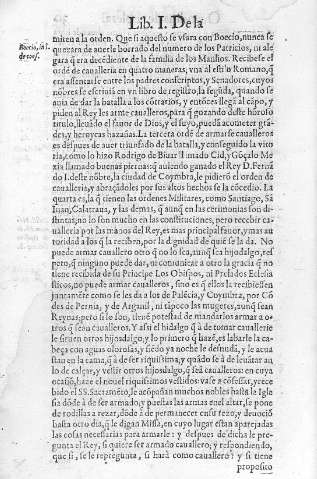 Lib. I. De la
Boecio, in l.
de conſ.
miten a la orden. Que ſi aqueſto ſe vſara con Boecio, nunca ſe
quexara de auerle borrado del numero de los Patricios, ni ale
gara q̃ era decẽdiente de la familia de los Manlios. Recibeſe el
ordẽ de cauallería en quatro maneras, vna al eſtilo Romano, q̃
era aſſentarſe entre los padres conſcriptos, y Senadores, cuyos
nõbres ſe eſcriuiã en vn libro de regiſtro, la ſegũda, quando ſe
auia de dar la batalla a los cõtrarios, y entõces llegã al cãpo, y
piden al Rey les arme caualleros, para q̃ gozando deſte honroſo
titulo, lleuãdo el fauor de Dios, y el ſuyo, puedã acometer grã-
des, y heroycas hazañas. La tercera ordẽ de armarſe caualleros
es deſpues de auer triunfado de la batalla, y conſeguido la vito
ria, como lo hizo Rodrigo de Biuar llamado Cid, y Gõçalo Me
xia llamado buenas piernas: q̃ auiẽdo ganado el Rey D. Fernã
do I. deſte nõbre, la ciudad de Coymbra, le pidierõ el orden de
caualleria, y abraçãdoles por ſus altos hechos ſe la cõcedio. La
quarta es, la q̃ tienen las ordenes Militares, como Santiago, Sã
Iuan, Calatraua, y las demas, q̃ aunq̃ en las cerimonias ſon di-
ſtintas, no lo ſon mucho en las conſtituciones, pero recebir ca-
ualleria por las manos del Rey, es mas principal fauor, y mas au
toridad a los q̃ la reciben, por la dignidad de quiẽ ſe la da. No
puede armar cauallero otro q̃ no lo ſea, aunq̃ ſea hijodalgo, reſ-
peto, q̃ ninguno puede dar, ni comunicar a otro la gracia q̃ no
tiene recibida de ſu Principe. Los Obiſpos, ni Prelados Ecleſia
ſticos, no puede armar caualleros, ſino es q̃ ellos la recibieſſen
juntamẽte como ſe les da a los de Palẽcia, y Coymbra, por Cõ
des de Pernia, y de Arganil, ni tãpoco las mugeres, aunq̃ ſean
Reynas; pero ſi lo ſon, tienẽ poteſtad de mandarlos armar a o-
tros q̃ ſeã caualleros. Y aſsi el hidalgo q̃ à de tomar cavalleria
le ſiruen otros hijoſdalgo, y lo primero q̃ hazẽ, es labarle la ca-
beça con aguas oloroſas, y ſiẽdo ya noche le deſnudã, y le acue
ſtan en la cama, q̃ à de ſer riquiſsima, y quãdo ſe à de leuãtar au
lo de calças, y veſtir otros hijoſdalgo, q̃ ſeã caualleros: en cuya
ocaſiõ, haze el nouel riquiſsimos veſtidos vaſe a cõfeſſar, y rece
bido el SS. Sacramẽto, le acõpañan muchos nobles haſta le Igle
ſia dõde à de ſer armado, y pueſtas las armas en el altar, ſe pone
de rodillas a rezar, dõde à de permanecer en ſu rezo, y deuociõ
haſta otro dia, q̃ le digan Miſſa, en cuyo lugar eſtan aparejadas
las coſas neceſſarias para armarle: y deſpues de dicha le pre-
gunta el Rey, ſi quiere ſer armado cauallero, y reſpondiendo,
que ſi, ſe le repregunta, ſi harà como cauallero? y ſi tiene
propoſito